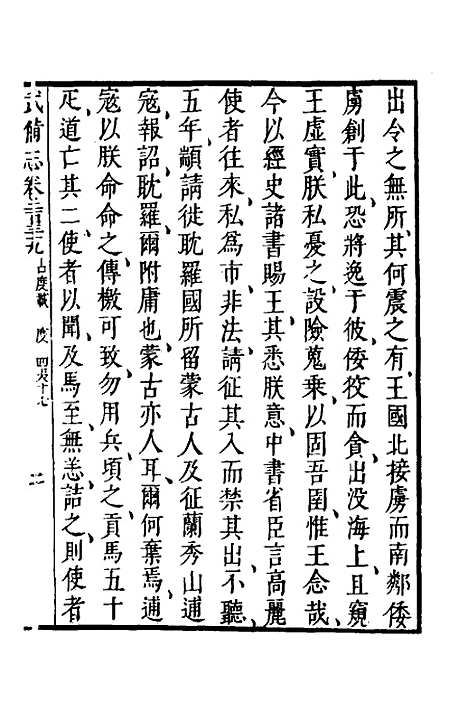 出令之無所其何震之有王國北接虜而南鄰倭
虜創于此恐將逸于彼倭狡而貪出没海上且窺
王虛實朕私憂之設險蒐乘以固吾圉惟王念哉
今以經史諸書賜王其悉朕意中書省臣言高麗
使者往來私爲市非法請征其入而禁其出不聽
五年顓請徙耽羅國所留蒙古人及征蘭秀山逋
寇報詔耽羅爾附庸也蒙古亦人耳爾何棄焉逋
寇以朕命命之傳檄可致勿用兵頃之貢馬五十
疋道亡其二使者以聞及馬至無恙詰之則使者
武備志卷二百三十九 占度載 度 四夷十七 二